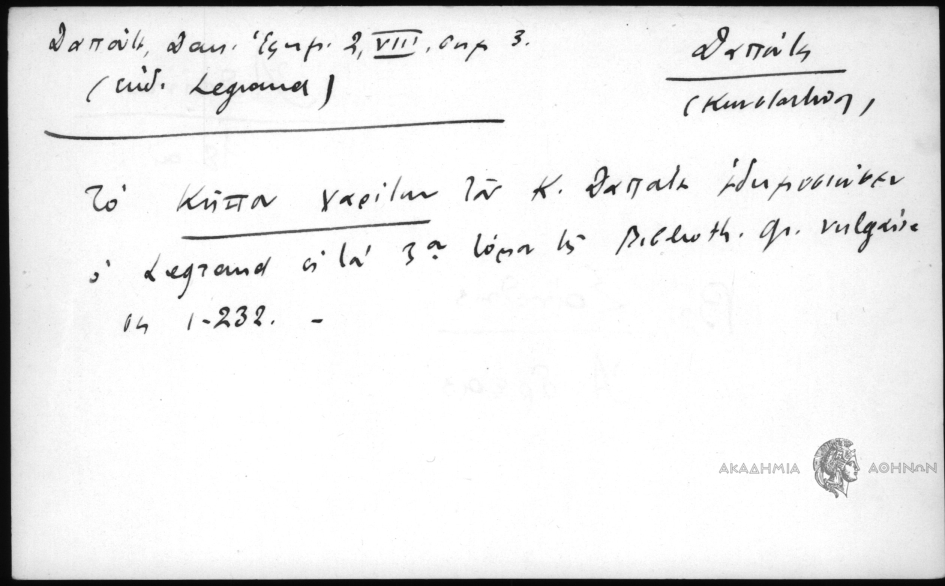 Δαπόντε, Δακ. Ἐφημ. 2, VIII, σημ 3.
(ἐκδ. Legrand)
Δαπόντε
(Κωνσταντῖνος)
Τὸν Κῆπον χαρίτων τοῦ Κ. Δαπόντε ἐδημοσίευσεν
ὁ Legrand εἰς τὸν 3ον τόμον τῆς Biblioth. Gr. vulgaire
σελ 1-232. -
ΑΚΑΔΗΜΙΑ ΑΘΗΝΩΝ